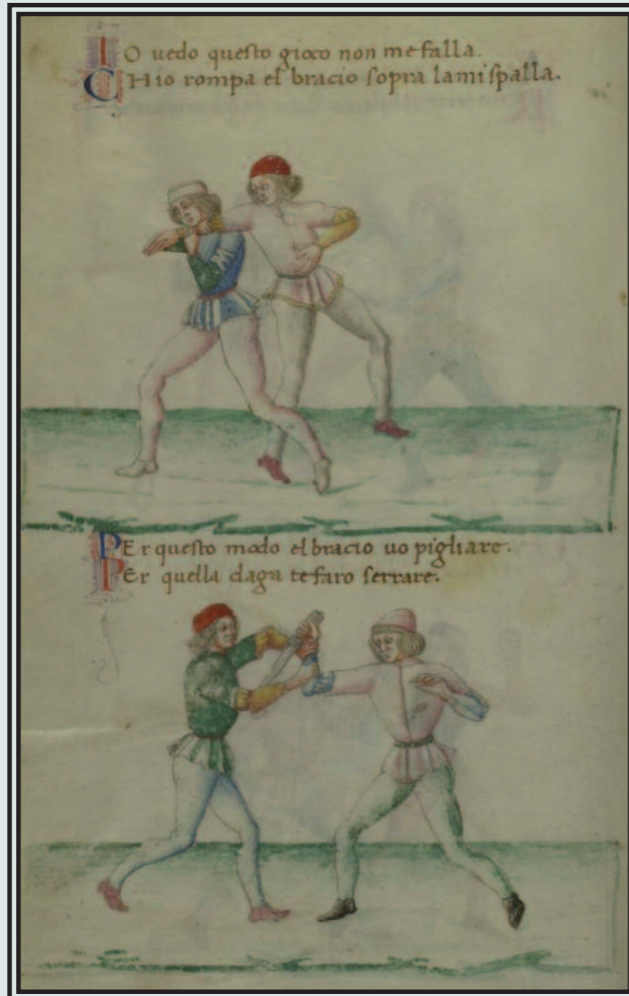 IO uedo questo gioco non me falla.
CHio rompa el bracio sopra la mi spalla.
PEr questo modo el bracio uo pigliare.
PEr quella daga te faro serrare.